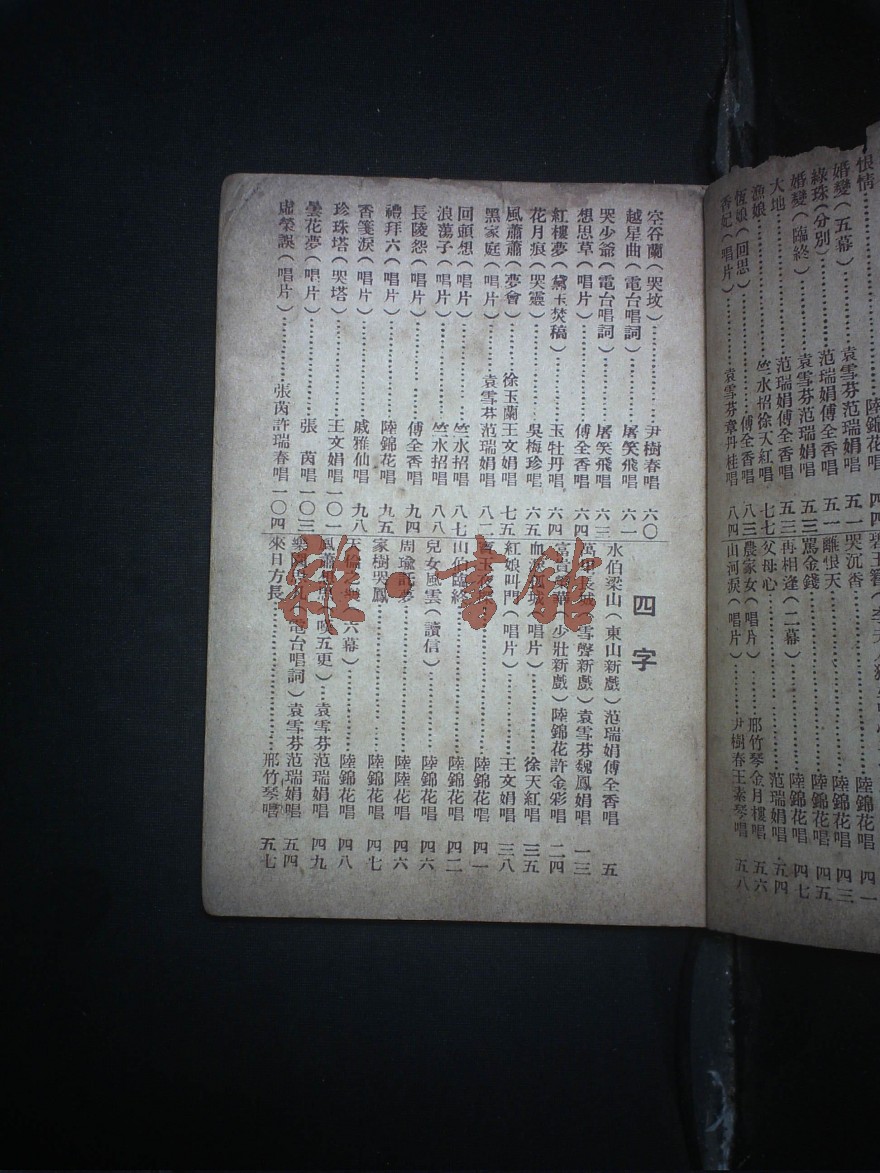 恨情
婚變（五幕）袁雪芬范瑞娟唱 五一
綠珠（分別）范瑞娟傅全香唱
婚變（臨終）袁雪芬范瑞娟唱 五三
大地 范瑞娟傅全香唱
漁娘 竺水招徐天紅唱 七七
恆娘（回思）傅全香唱 八三
香妃（唱片）袁雪芬章丹桂唱 八四
陸錦花唱 四一
哭沉香 陸錦花唱 四三
離恨天 陸錦花唱 四五
罵金錢 陸錦花唱 四七
再相逢（二幕）范瑞娟唱 五四
父母心 邢竹琴金月樓唱 五六
農家女（唱片）
山河淚（唱片）尹樹春王素琴唱 五八
空谷蘭（哭坟）尹樹春唱 六〇
越星曲（電台唱詞）屠笑飛唱 六一
哭少爺（電台唱詞）屠笑飛唱 六三
想思草（唱片）傅全香唱 六四
紅樓夢（黛玉焚稿）玉牡丹唱 六四
花月痕（哭靈）吳梅珍唱 六五
風蕭蕭（夢會）徐玉蘭王文娟唱 七五
黑家庭（唱片）袁雪芬范瑞娟唱 八二
回頭想（唱片）竺水招唱 八七
浪蕩子（唱片）竺水招唱 八八
長陵怨（唱片）傅全香唱 九四
禮拜六（唱片）陸錦花唱 九五
香箋淚（唱片）戚雅仙唱 九八
珍珠塔（哭塔）王文娟唱 一〇一
曇花夢（唱片）張茵唱 一〇三
虛榮誤（唱片）張茵許瑞春唱 一〇四
四字
水伯梁山（東山新戲）范瑞娟傅全香唱 五
萬里長城（雪聲新戲）袁雪芬魏鳳娟唱 一三
富貴榮華（少壯新戲）陸錦花許金彩唱 二四
血灑孤城（唱片）徐天紅唱 三五
紅娘叫門（唱片）王文娟唱 三八
陸錦花唱 四一
山伯臨終 陸錦花唱 四二
兒女風雲（讀信）陸錦花唱 四六
周瑜託夢 陸陸花唱 四六
家樹哭鳳 陸錦花唱 四七
天倫之樂（六幕）陸錦花唱 四八
嘆五更 袁雪芬范瑞娟唱 四九
（電台唱詞）袁雪芬范瑞娟唱 五四
來日方長 邢竹琴唱 五七
雜·書館